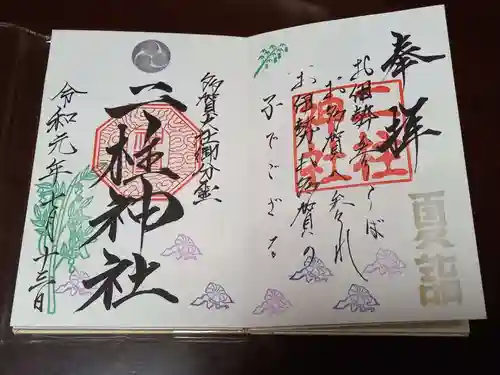 奉拝
夏詣
お伊勢参らば
お多賀へ参れ
お伊勢お多賀の
子でござる
二柱
神社
多賀大社御分霊
二柱神社
令和元年七月十三日